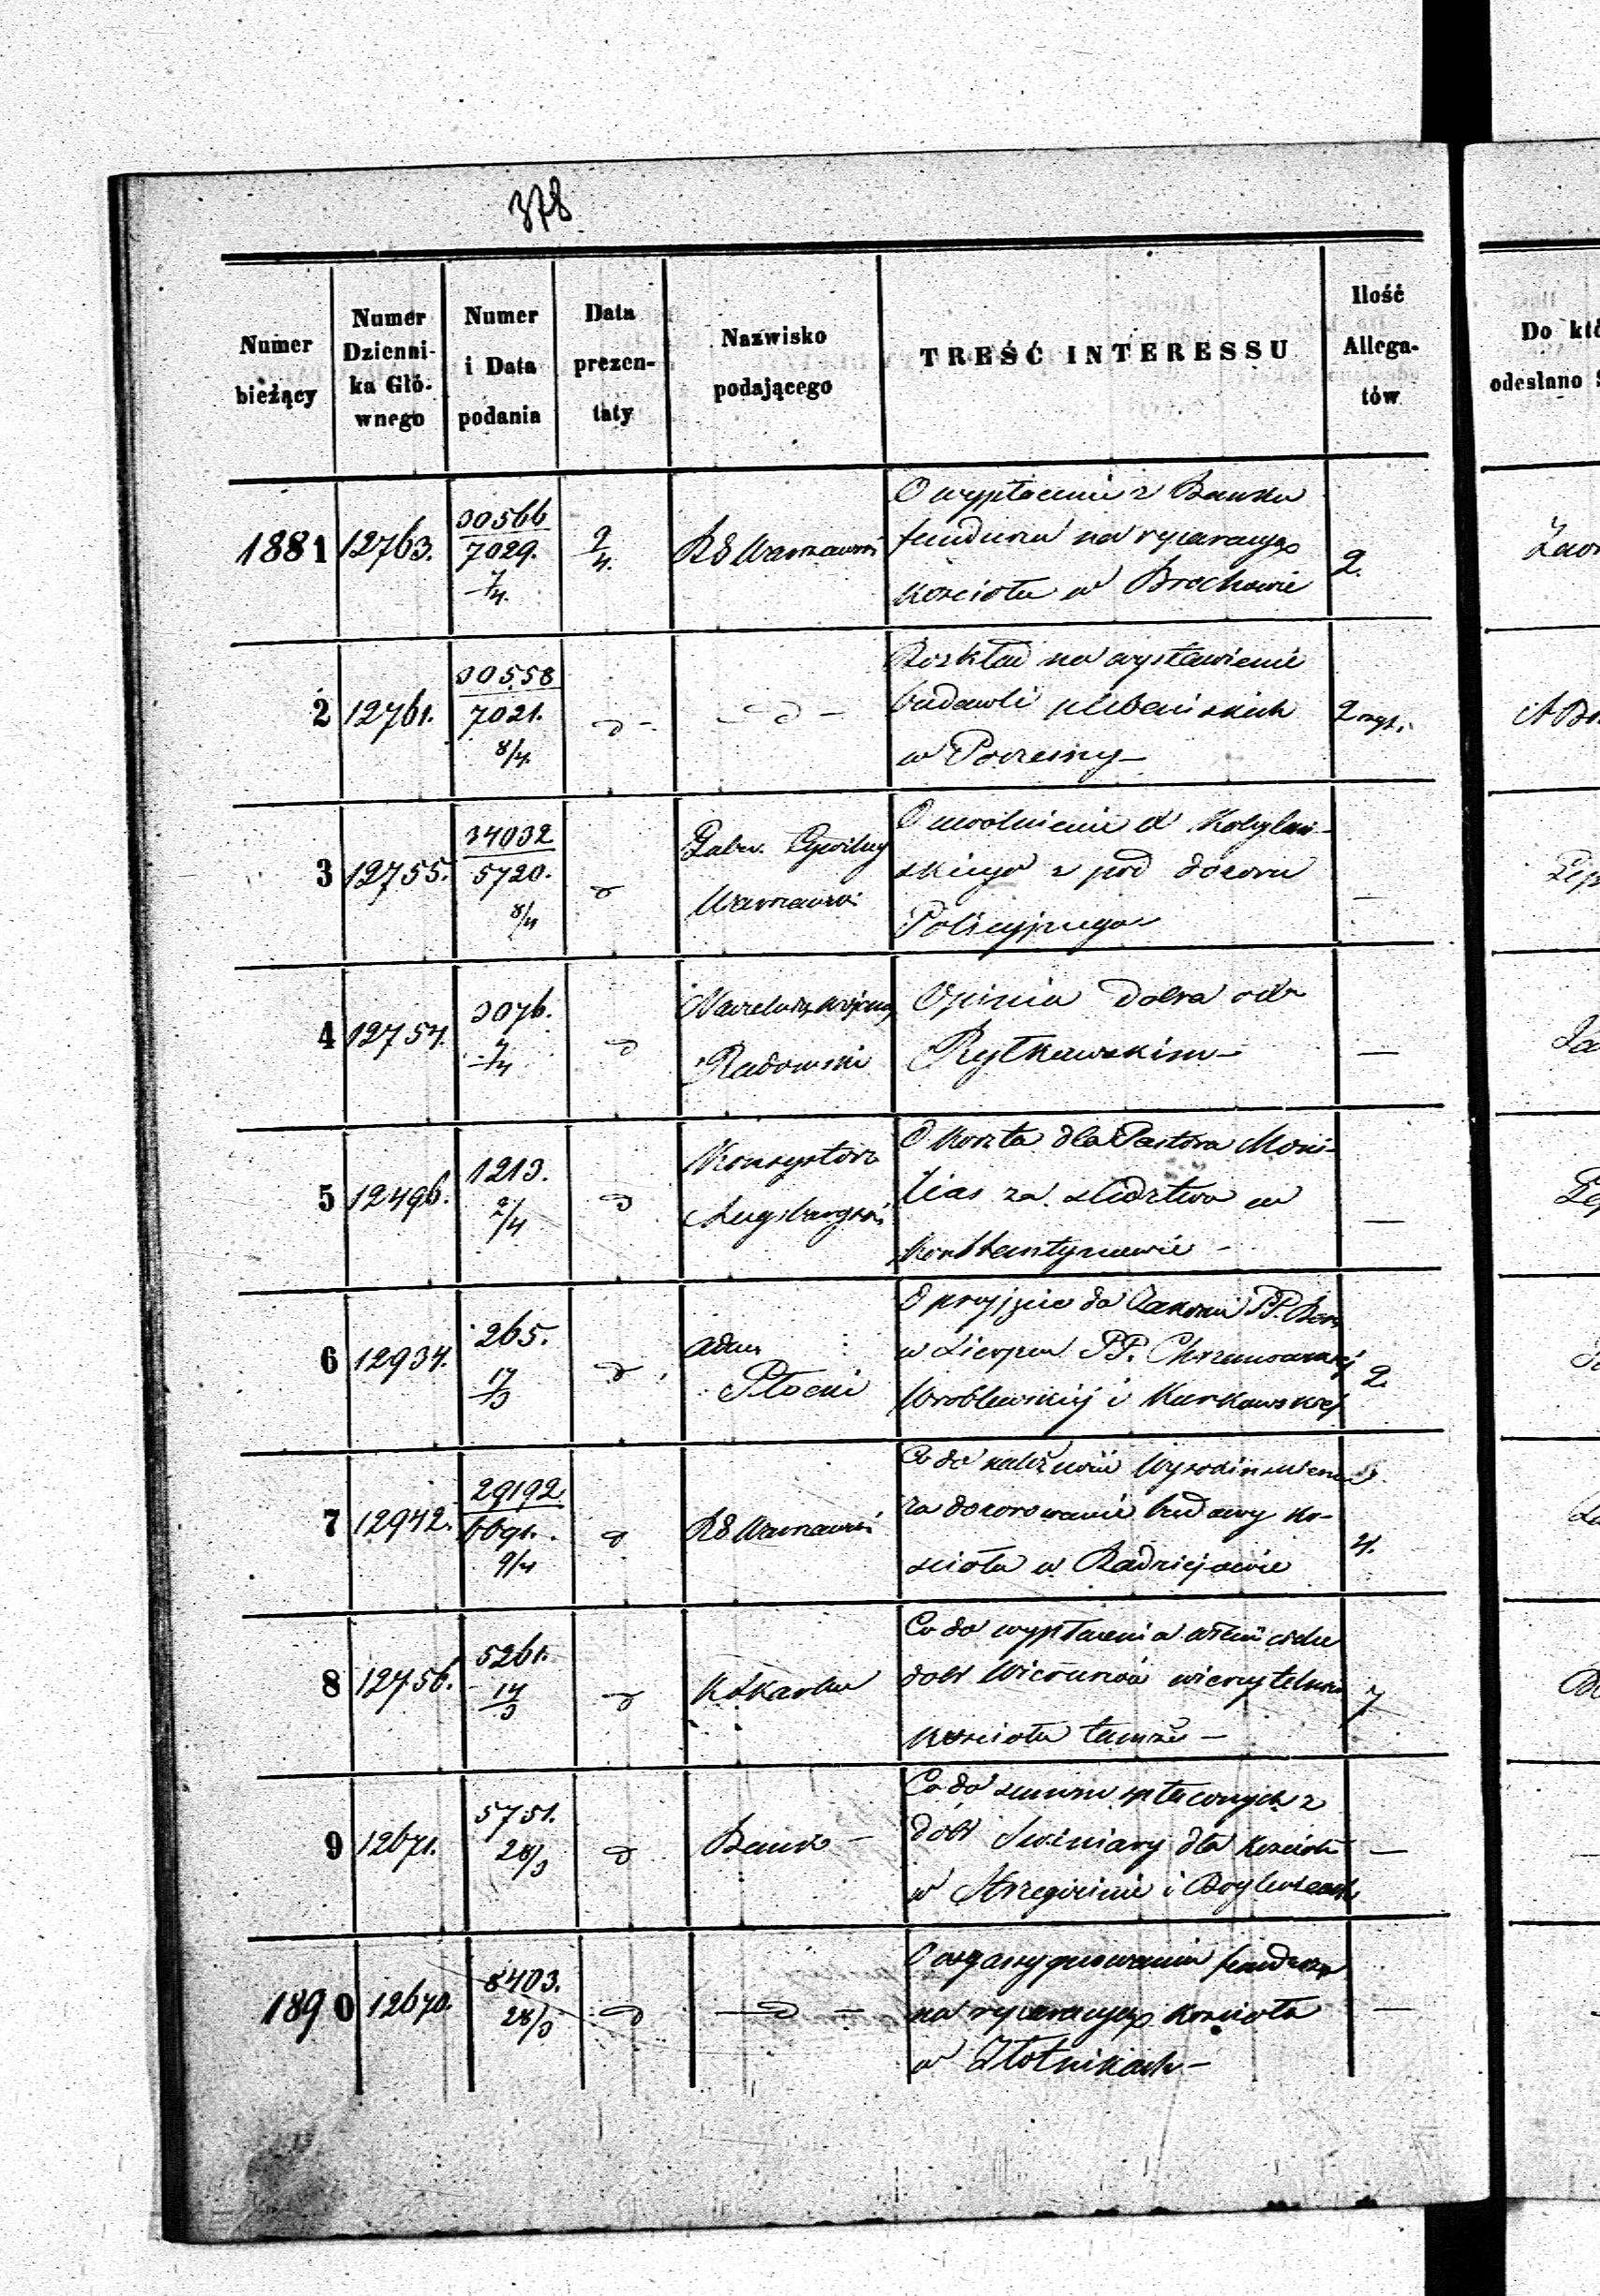 378
Numer bieżący
Numer Dzienni- ka Głó- wnego
Numer i Data podania
Data prezen- taty
Nazwisko podającego
TREŚĆ INTERESSU
Ilość Allega- tów
Do któ
odesłano S
1881
12763.
30566
7029.
7/4.
9/4.
RG Warszawski
O wypłacenie z Banku
funduszu na reparacyę
kościoła w Brochowie
2.
2
12761.
30558
7021.
8/4.
d -
- d -
Rozkład na wystawienie
budowli plebańskich
w
2
3
12755.
34032
5720.
8/4
d
Gubern. Cywilny
Warszawski
O uwolnienie
skiego z pod dozoru
Policyjnego
—
4
12754.
3076.
7/4
d
Naczelnik Wojenny
Radomski
Opinia dobra o
Rytkowskim -
—
5
12496.
1213.
2/4
d
Konsystorz
Augsburgski
O koszta dla Pastora Moni-
tias za śledztwo w
Konstantynowie -
—
6
12934.
265.
17/3
d
Adm
Płocki
O przyjęcie do Zakonu PP. Ben
w Sierpcu PP. Chrzanowskiej
Wróblewskiej i Kurkowskiej
2.
7
12942.
29192
6691.
9/4
d
RG Warszawski
Co do należności
za dozorowanie budowy ko-
ścioła w Radziejowie
4.
8
12756.
5261.
14/3
d
Co do wypłacenia właścicielce
dóbr Wieruszów wierzytelności
kościoła tamże -
7
9
12671.
5751.
28/3
d
Bank -
Co do summ spłaconych z
dóbr Swiniary dla kościoła
w Strzegocinie i
—
1890
12670.
8403.
28/3
d
- d -
O wyassygnowanie funduszu
na reparacyę kościoła
w Złotnikach -
—